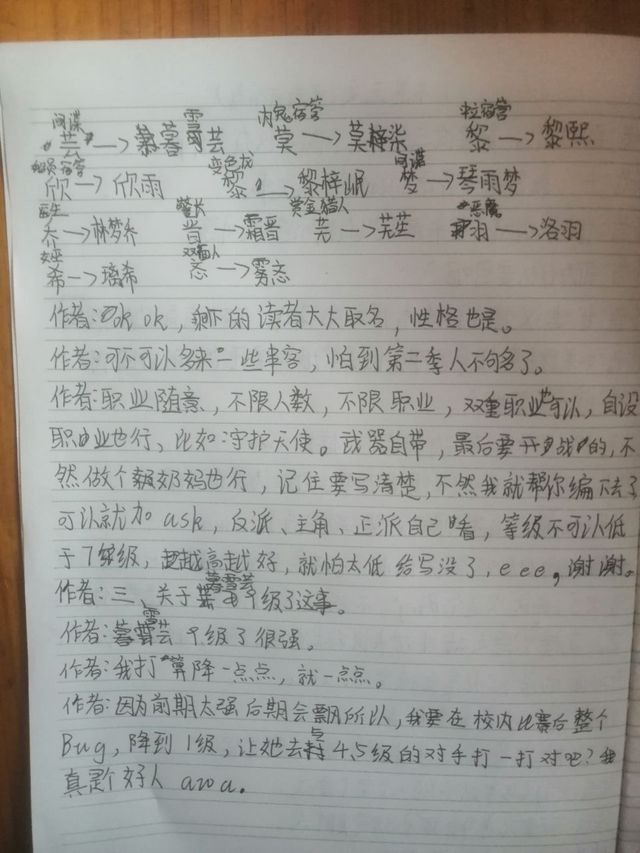 间谍 雪 内鬼宿营 粒宿营
芸→慕暮芸 莫→莫梓柒 黎→黎熙
宿营 变色龙 间谍
欣→欣雨 黎→黎梓岷 梦→琴雨梦
医生 警长 赏金猎人 恶魔
乔→林梦乔 晋→霜晋 芜→芜茔 羽→洛羽
女巫 双面人
希→璃希 忞→雾忞
作者:ok ok,剩下的读者大大取名,性格也是。
作者:可不可以多来一些串客,怕到第二季人不够了。
作者:职业随意,不限人数,不限职业,双重职业也可以,自设
职业也行、比如:守护天使。武器自带,最后要开战的,不
然做个奶妈也行,记住要写清楚,不然我就帮你编下去了
可以就加ask,反派、主角、正派自己看,等级不可以低
于7级,越高越好,就怕太低给写没了,eee,谢谢。
暮雪芸
作者:三、关于 千级了这事。
雪
作者:暮芸千级了很强。
作者:我打算降一点点,就一点点。
作者:因为前期太强后期会飘所以,我要在校内比赛后整个
Bug,降到1级,让她去与4、5级的对手打一打对吧?我
真是个好人awa。